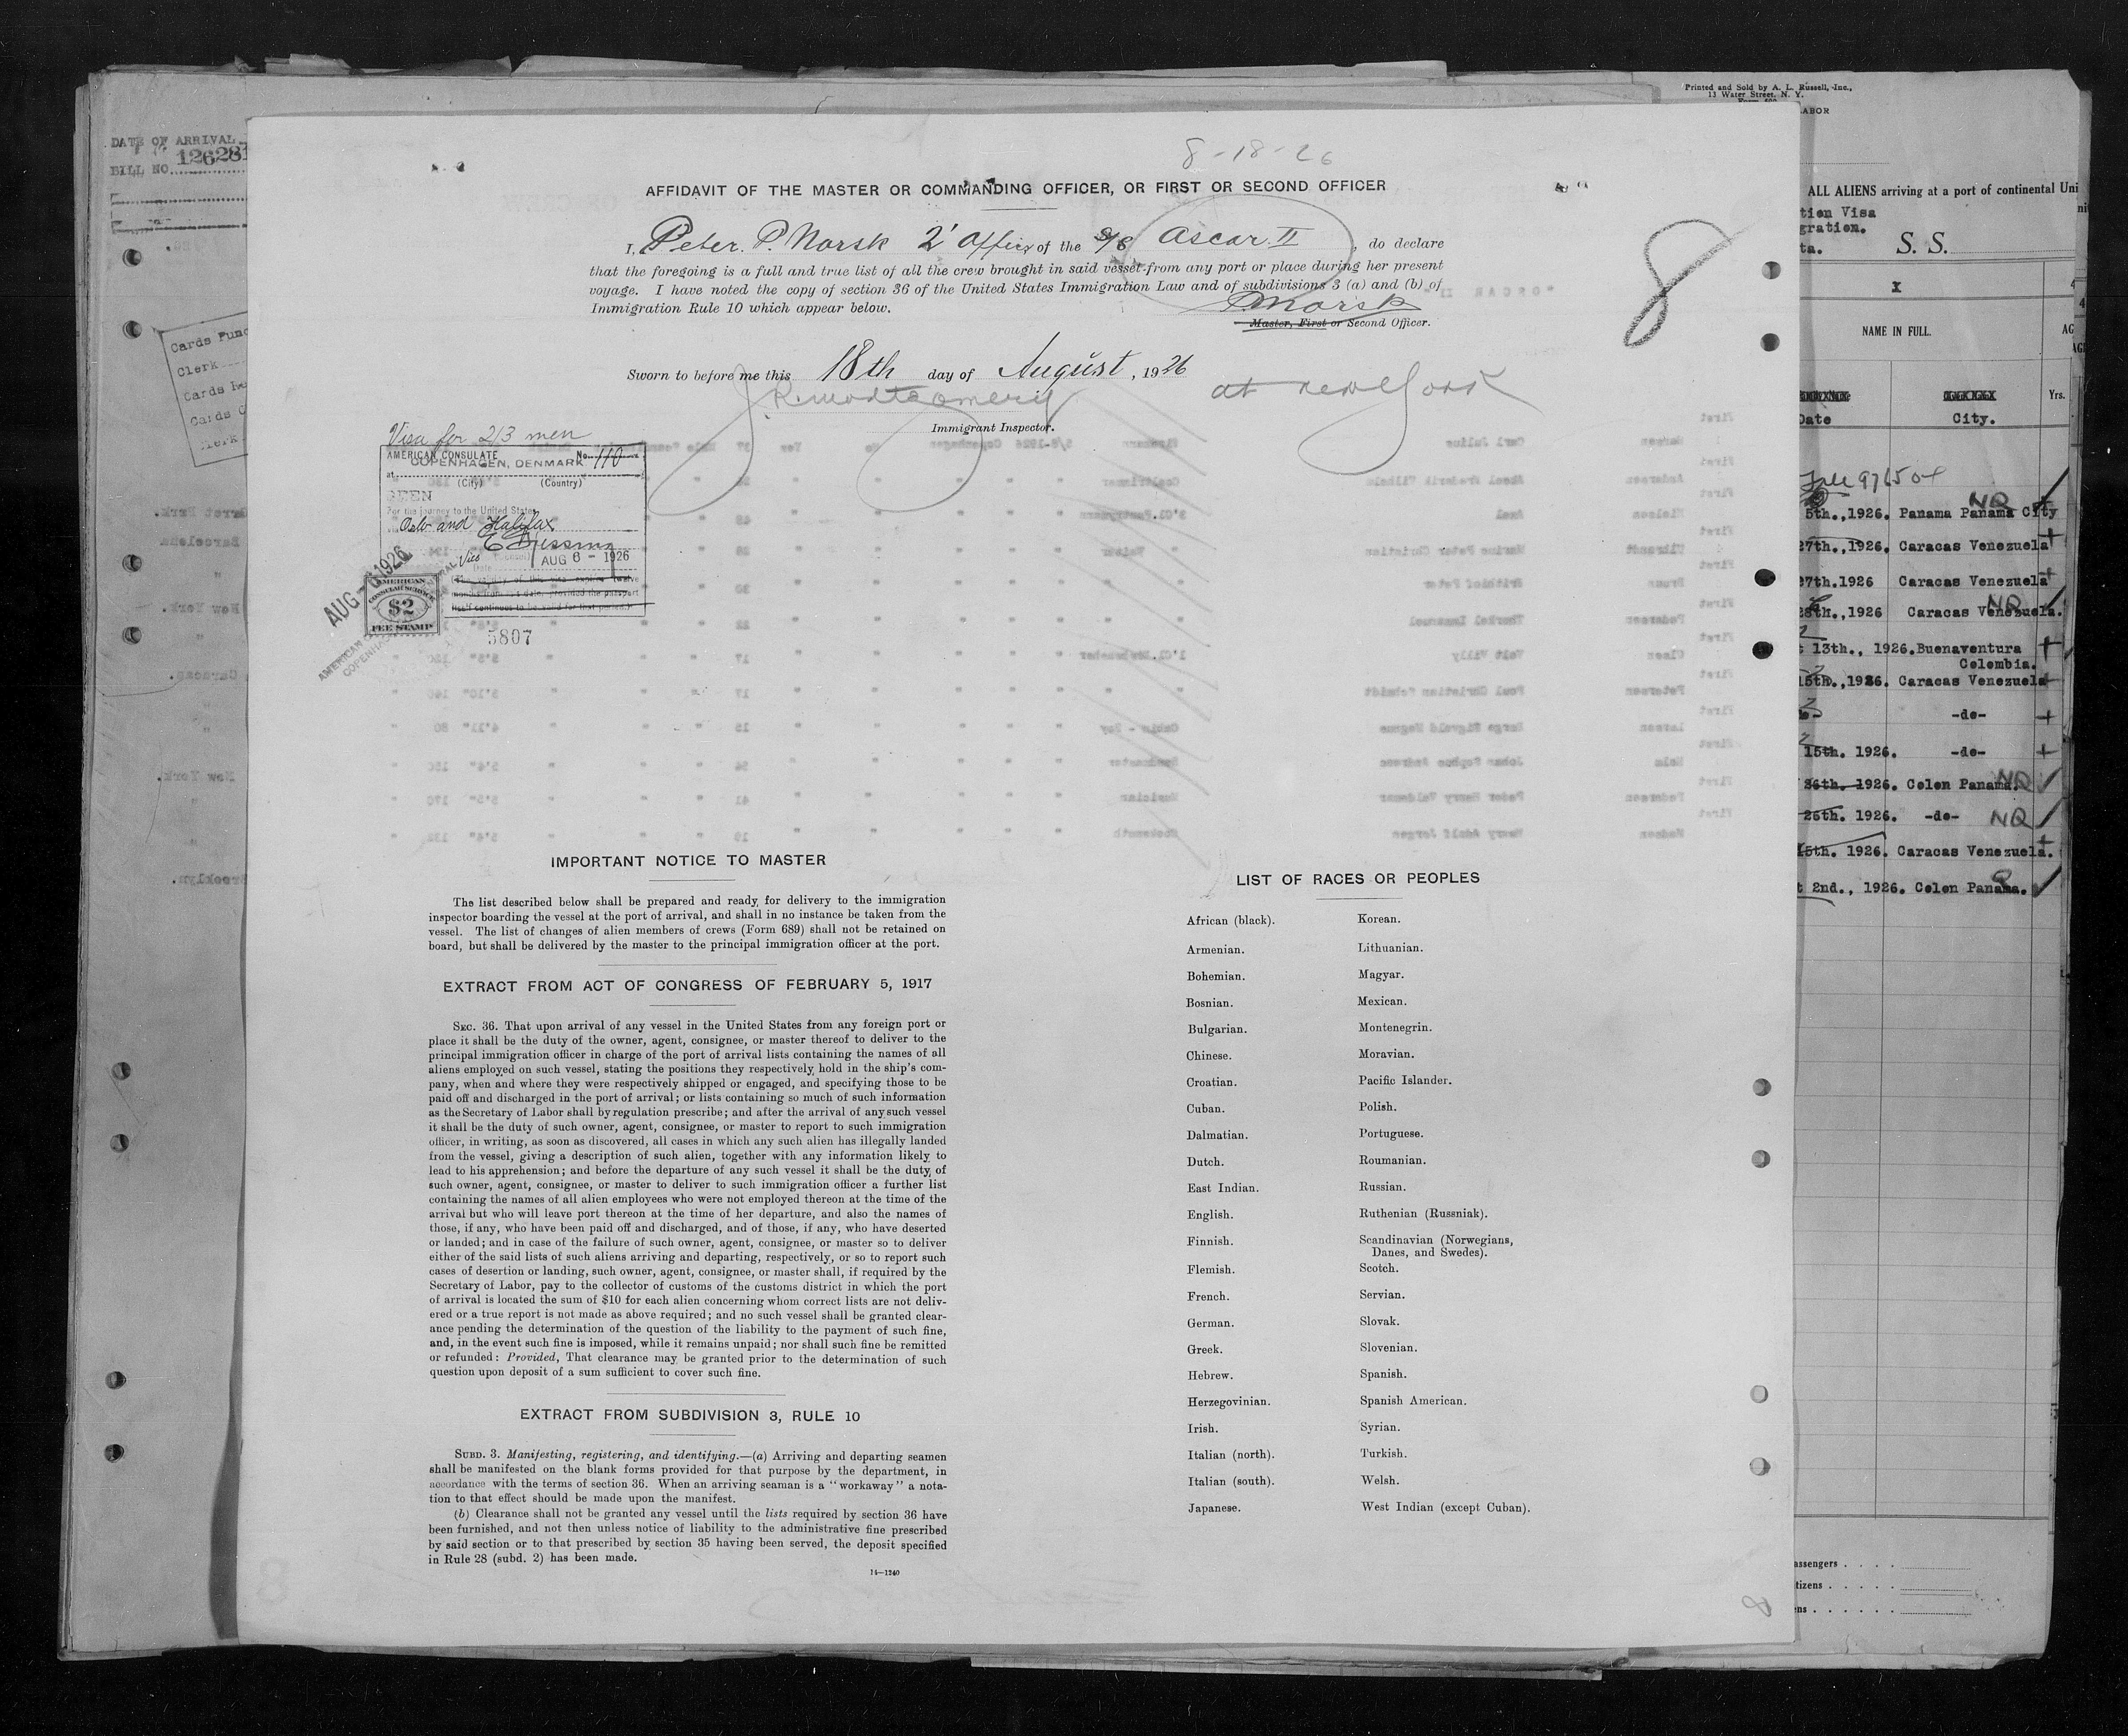 DATE OF ARRIVAL
BILL NO. 126281
Cards Punc
Clerk
Cards
Cards
8-18-26
AFFIDAVIT OF THE MASTER OR COMMANDING OFFICER, OR FIRST OR SECOND OFFICER
I, Peter. P. Norsk 2' Officer of the S/S Oscar II, do declare
that the foregoing is a full and true list of all the crew brought in said vessel from any port or place during her present
voyage. I have noted the copy of section 36 of the United States Immigration Law and of subdivisions 3 (a) and (b) of
Immigration Rule 10 which appear below.
PNorsk
Master, First or Second Officer.
8
Sworn to before me this 18th day of August, 1926
J. R. Montgomery at New York
Immigrant Inspector.
Visa for 213 men
AMERICAN CONSULATE No. 110
at COPENHAGEN, DENMARK
(City) (Country)
SEEN
For the journey to the United States
Oslo and Halifax
Vice AUG 6 - 1926
AUG 1926
AMERICAN
CONSULAR SERVICE
$2
FEE STAMP
5807
IMPORTANT NOTICE TO MASTER
The list described below shall be prepared and ready for delivery to the immigration
inspector boarding the vessel at the port of arrival, and shall in no instance be taken from the
vessel. The list of changes of alien members of crews (Form 689) shall not be retained on
board, but shall be delivered by the master to the principal immigration officer at the port.
EXTRACT FROM ACT OF CONGRESS OF FEBRUARY 5, 1917
SEC. 36. That upon arrival of any vessel in the United States from any foreign port or
place it shall be the duty of the owner, agent, consignee, or master thereof to deliver to the
principal immigration officer in charge of the port of arrival lists containing the names of all
aliens employed on such vessel, stating the positions they respectively hold in the ship's com-
pany, when and where they were respectively shipped or engaged, and specifying those to be
paid off and discharged in the port of arrival; or lists containing so much of such information
as the Secretary of Labor shall by regulation prescribe; and after the arrival of any such vessel
it shall be the duty of such owner, agent, consignee, or master to report to such immigration
officer, in writing, as soon as discovered, all cases in which any such alien has illegally landed
from the vessel, giving a description of such alien, together with any information likely to
lead to his apprehension; and before the departure of any such vessel it shall be the duty of
such owner, agent, consignee, or master to deliver to such immigration officer a further list
containing the names of all alien employees who were not employed thereon at the time of the
arrival but who will leave port thereon at the time of her departure, and also the names of
those, if any, who have been paid off and discharged, and of those, if any, who have deserted
or landed; and in case of the failure of such owner, agent, consignee, or master so to deliver
either of the said lists of such aliens arriving and departing, respectively, or so to report such
cases of desertion or landing, such owner, agent, consignee, or master shall, if required by the
Secretary of Labor, pay to the collector of customs of the customs district in which the port
of arrival is located the sum of $10 for each alien concerning whom correct lists are not deliv-
ered or a true report is not made as above required; and no such vessel shall be granted clear-
ance pending the determination of the question of the liability to the payment of such fine,
and, in the event such fine is imposed, while it remains unpaid; nor shall such fine be remitted
or refunded: Provided, That clearance may be granted prior to the determination of such
question upon deposit of a sum sufficient to cover such fine.
EXTRACT FROM SUBDIVISION 3, RULE 10
SUBD. 3. Manifesting, registering, and identifying.—(a) Arriving and departing seamen
shall be manifested on the blank forms provided for that purpose by the department, in
accordance with the terms of section 36. When an arriving seaman is a "workaway" a nota-
tion to that effect should be made upon the manifest.
(b) Clearance shall not be granted any vessel until the lists required by section 36 have
been furnished, and not then unless notice of liability to the administrative fine prescribed
by said section or to that prescribed by section 35 having been served, the deposit specified
in Rule 28 (subd. 2) has been made.
14—1240
LIST OF RACES OR PEOPLES
African (black). Korean.
Armenian. Lithuanian.
Bohemian. Magyar.
Bosnian. Mexican.
Bulgarian. Montenegrin.
Chinese. Moravian.
Croatian. Pacific Islander.
Cuban. Polish.
Dalmatian. Portuguese.
Dutch. Roumanian.
East Indian. Russian.
English. Ruthenian (Russniak).
Finnish. Scandinavian (Norwegians,
Danes, and Swedes).
Flemish. Scotch.
French. Servian.
German. Slovak.
Greek. Slovenian.
Hebrew. Spanish.
Herzegovinian. Spanish American.
Irish. Syrian.
Italian (north). Turkish.
Italian (south). Welsh.
Japanese. West Indian (except Cuban).
Printed and Sold by A. L. Russell, Inc.,
13 Water Street, N. Y.
LABOR
ALL ALIENS arriving at a port of continental Uni
tion Visa
gration.
ta. S. S.
x
NAME IN FULL. AG
Date City. Yrs.
5th.,1926. Panama Panama City NQ
27th.,1926. Caracas Venezuela
27th.1926 Caracas Venezuela
28th.,1926 Caracas Venezuela. NQ
t 13th., 1926. Buenaventura
Colombia.
15th.,1926. Caracas Venezuela
-do-
15th. 1926. -do-
26th. 1926. Colon Panama. NQ
25th. 1926. -do- NQ
15th. 1926. Caracas Venezuela.
t 2nd., 1926. Colon Panama.
assengers
tizens
ens